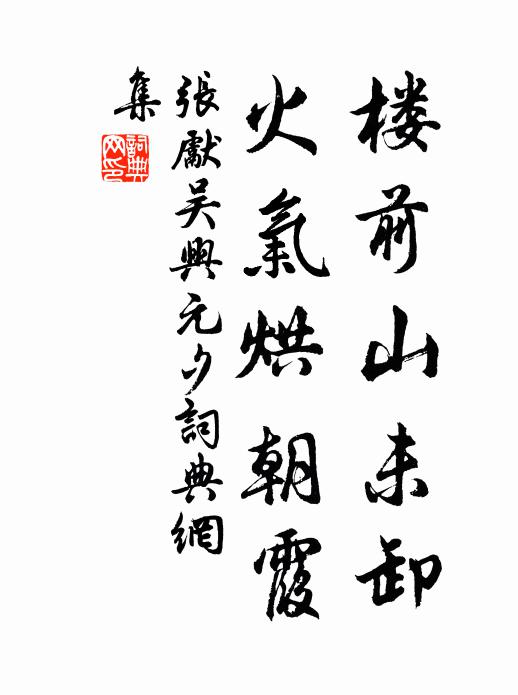 楼前山未卸
火氣烘朝霞
張獻吴興元夕詞典網
集
詞典
网印